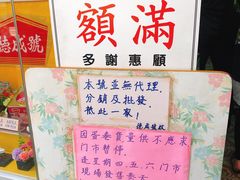 德成號
額滿
多謝惠顧
本號並無代理,
分銷及批發,
祇此一家!
德成號啟
因蛋卷貨量供不應求
門市暫停,
逢星期四、五、六門市
現場發售